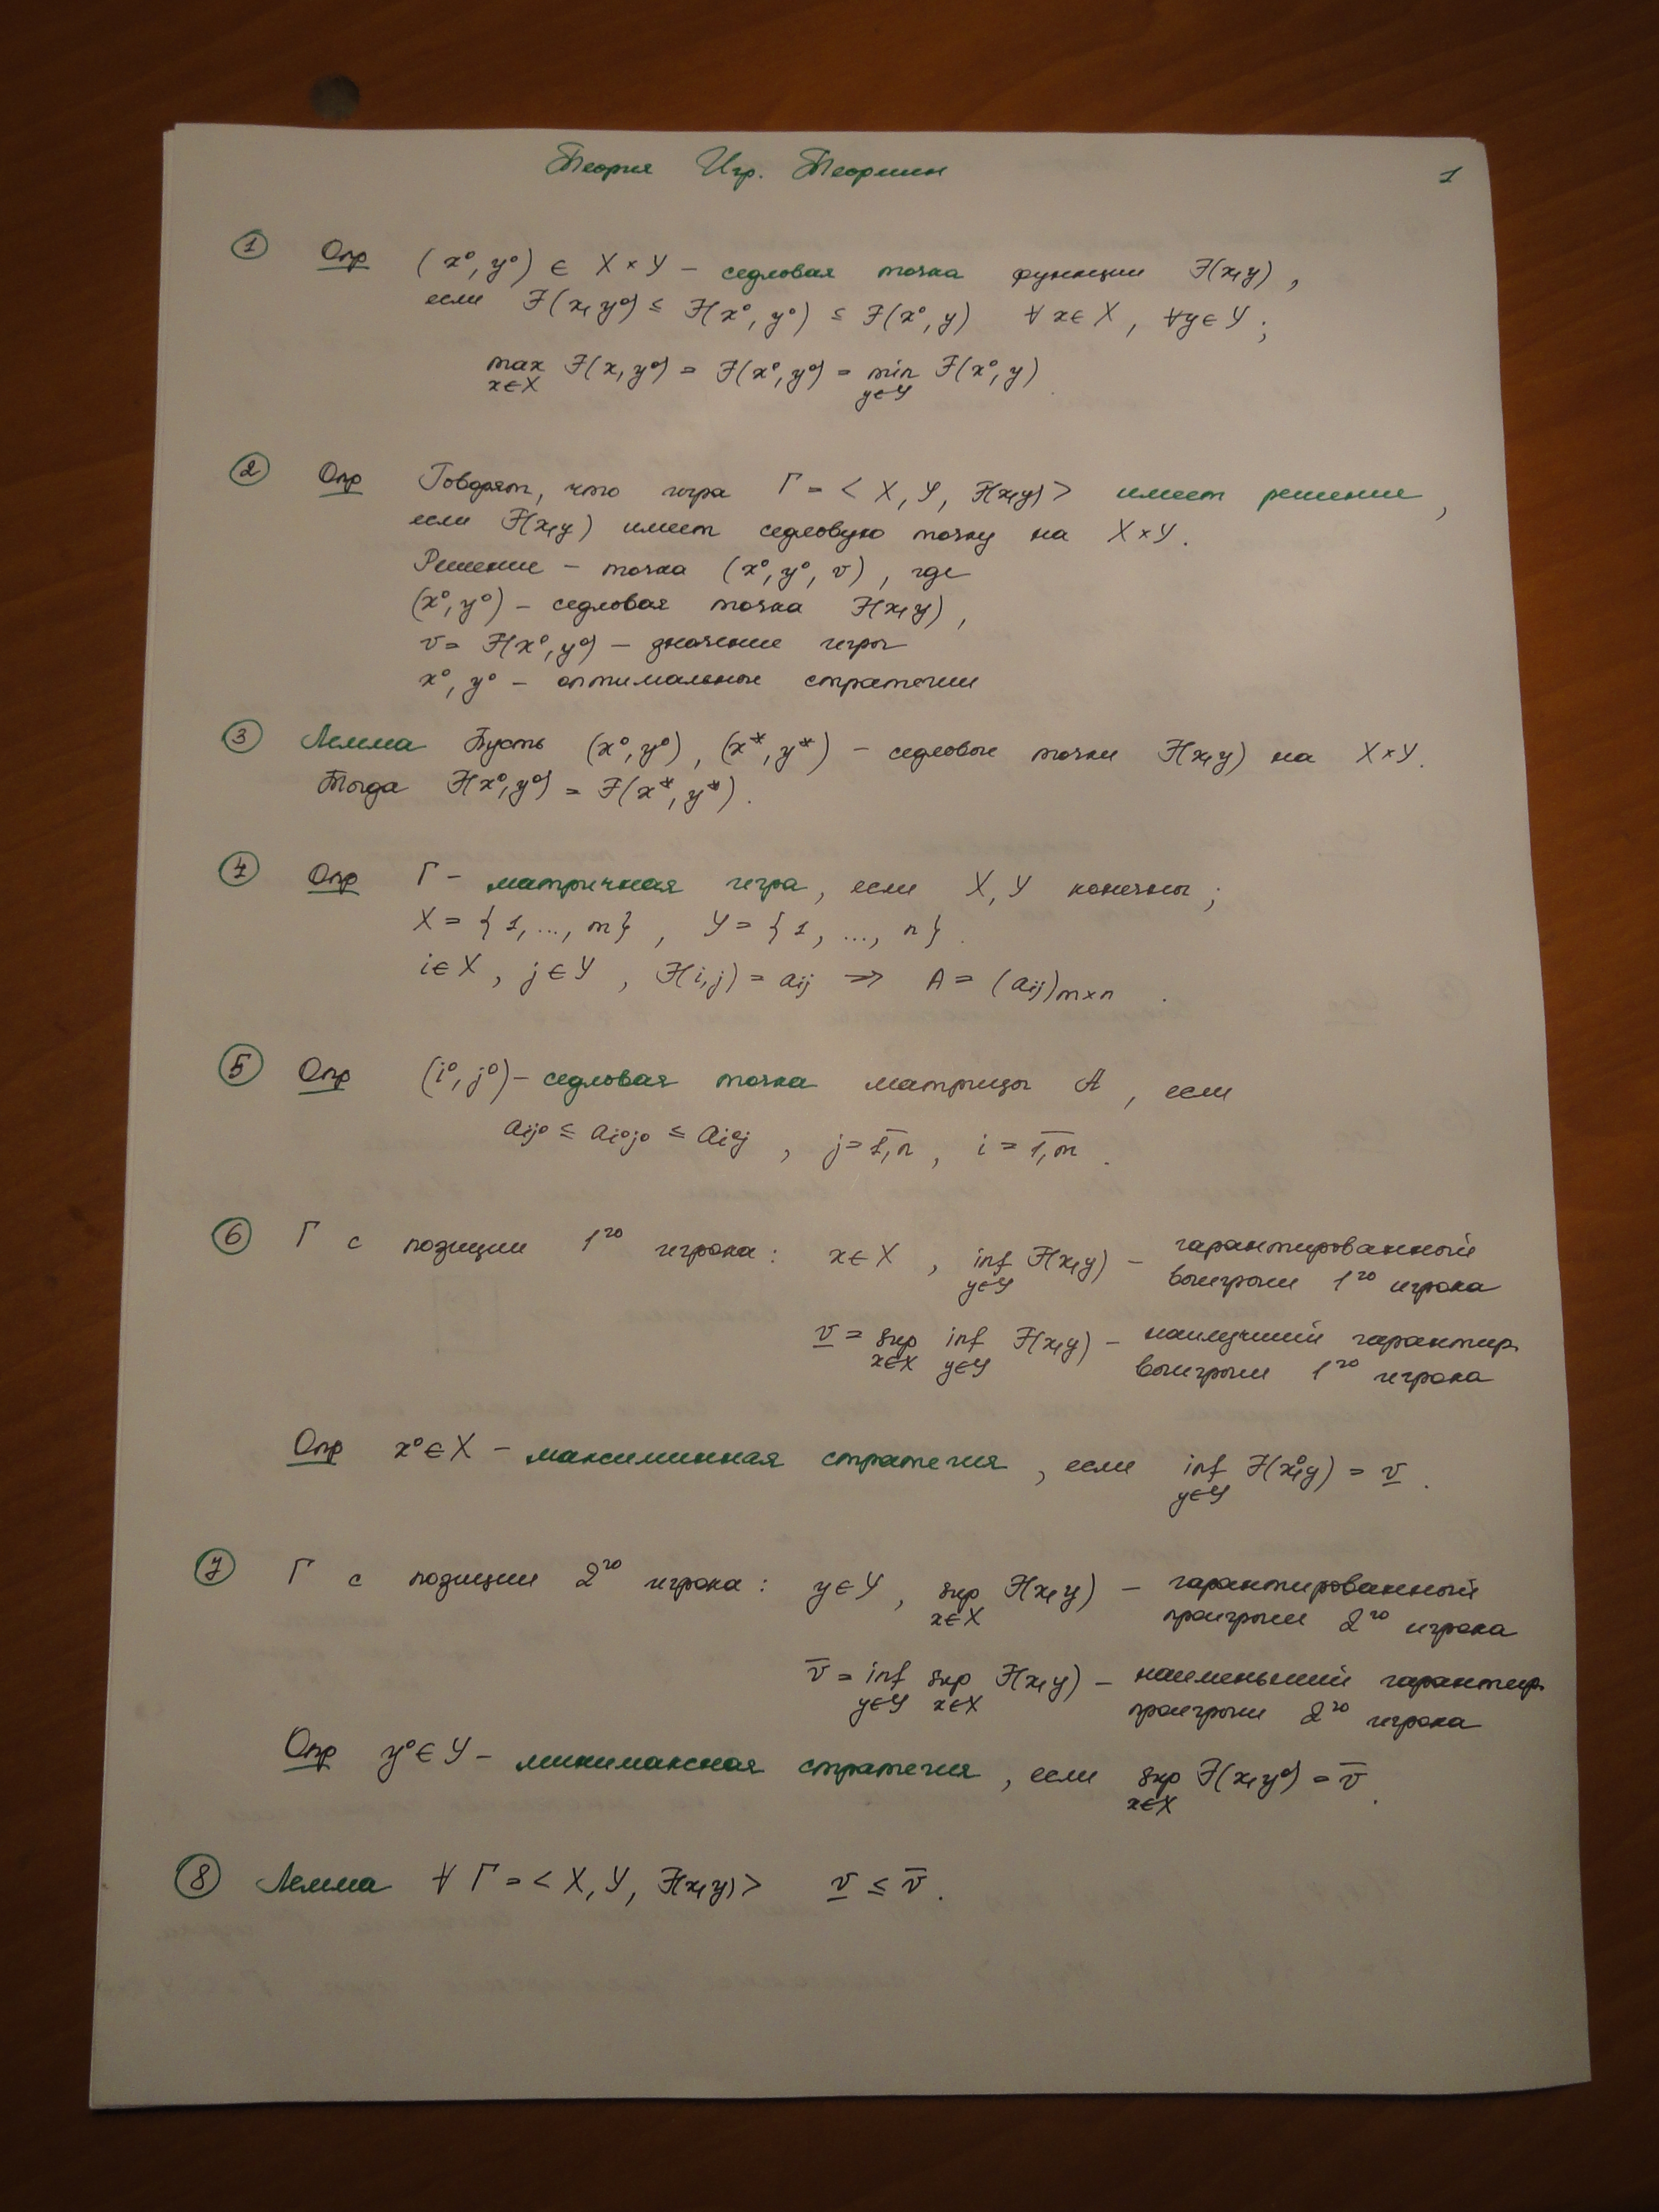 Теория Игр. Теормин
1
① Опр (x⁰, y⁰) ∈ X × Y – седловая точка функции F(x,y),
если F(x, y⁰) ≤ F(x⁰, y⁰) ≤ F(x⁰, y) ∀ x ∈ X, ∀y ∈ Y;
max F(x, y⁰) = F(x⁰, y⁰) = min F(x⁰, y)
x∈X y∈Y
② Опр Говорят, что игра Γ = < X, Y, F(x,y) > имеет решение,
если F(x,y) имеет седловую точку на X × Y.
Решение – точка (x⁰, y⁰, v), где
(x⁰, y⁰) – седловая точка F(x,y),
v = F(x⁰, y⁰) – значение игры
x⁰, y⁰ – оптимальные стратегии
③ Лемма Пусть (x⁰, y⁰), (x*, y*) – седловые точки F(x,y) на X × Y.
Тогда F(x⁰, y⁰) = F(x*, y*).
④ Опр Γ – матричная игра, если X, Y конечны;
X = {1, ..., m}, Y = {1, ..., n}.
i ∈ X, j ∈ Y, F(i,j) = aij ⇒ A = (aij)m×n.
⑤ Опр (i⁰, j⁰) – седловая точка матрицы A, если
aij⁰ ≤ ai⁰j⁰ ≤ ai⁰j, j = 1,n, i = 1,m.
⑥ Γ с позиции 1го игрока: x ∈ X, inf F(x,y) – гарантированный
y∈Y выигрыш 1го игрока
v = sup inf F(x,y) – наилучший гарантир.
x∈X y∈Y выигрыш 1го игрока
Опр x⁰ ∈ X – максиминная стратегия, если inf F(x⁰,y) = v.
y∈Y
⑦ Γ с позиции 2го игрока: y ∈ Y, sup F(x,y) – гарантированный
x∈X проигрыш 2го игрока
v̅ = inf sup F(x,y) – наименьший гарантир.
y∈Y x∈X проигрыш 2го игрока
Опр y⁰ ∈ Y – минимаксная стратегия, если sup F(x,y⁰) = v̅.
x∈X
⑧ Лемма ∀ Γ = < X, Y, F(x,y) > v ≤ v̅.